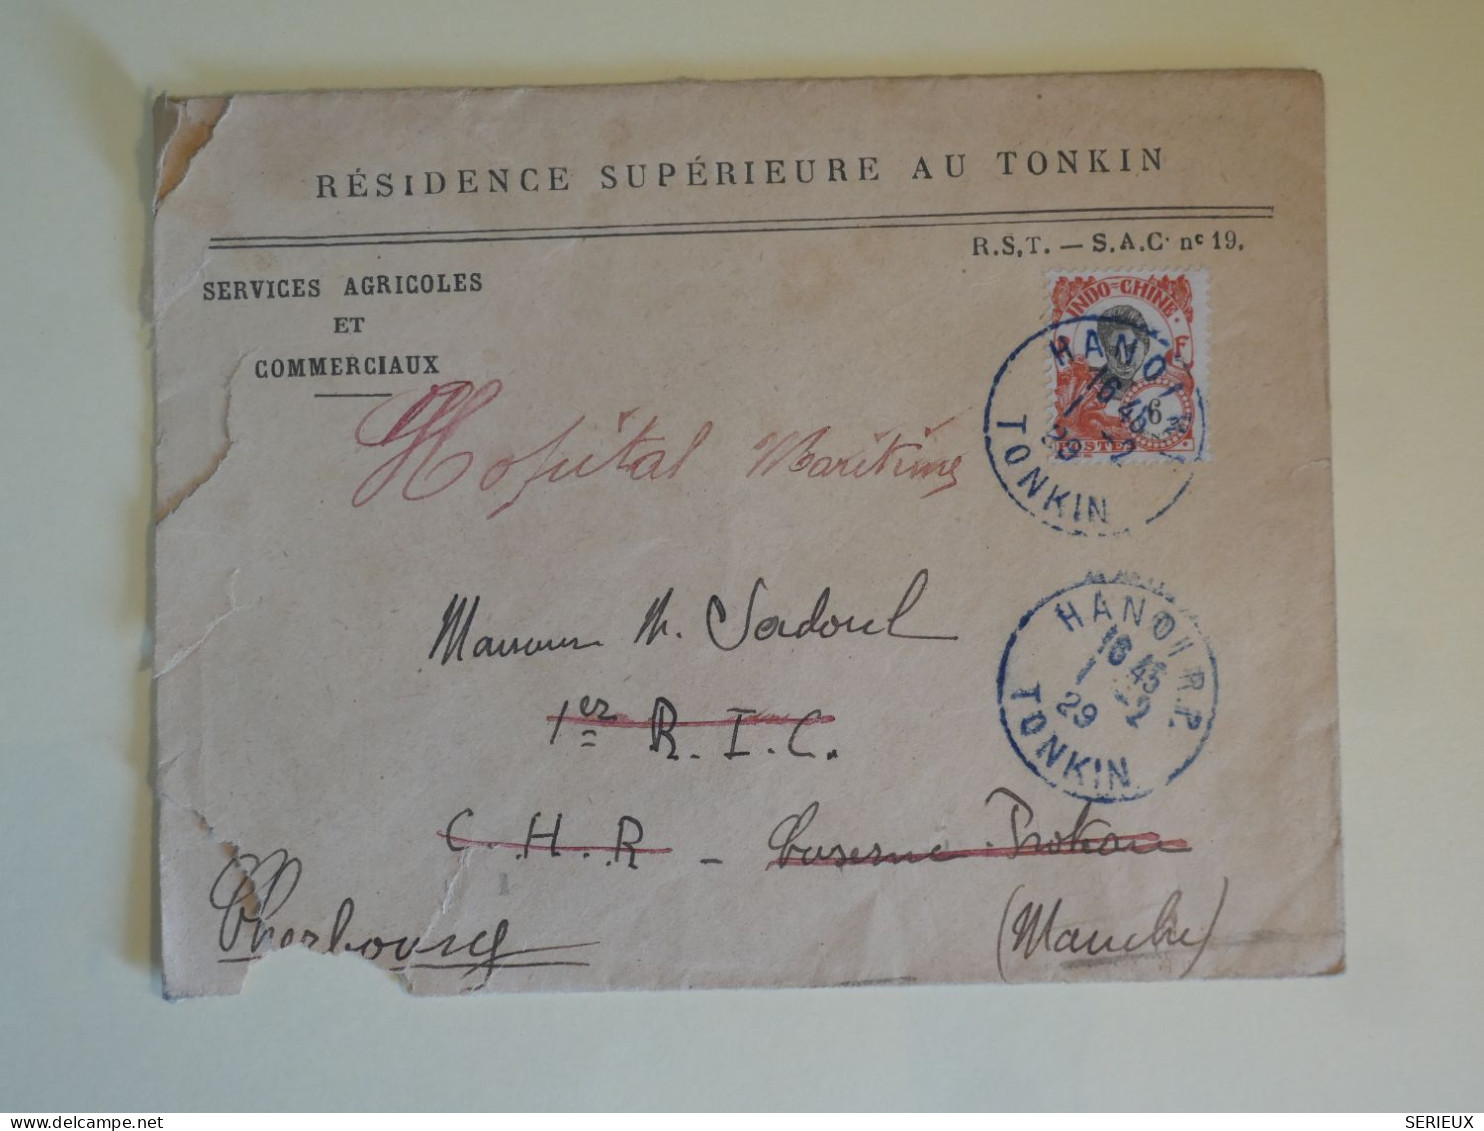 RÉSIDENCE SUPÉRIEURE AU TONKIN
R.S.T. — S.A.C. nº 19.
SERVICES AGRICOLES
ET
COMMERCIAUX
INDO=CHINE
F
6
POSTES
HANOI
16 45
1 - 2
29
TONKIN
Hopital Maritime
Monsieur M. Sadoul
HANOI R.P.
16 45
1 - 2
29
TONKIN
1er R.I.C.
C.H.R - Caserne
Cherbourg
(Manche)
SERIEUX